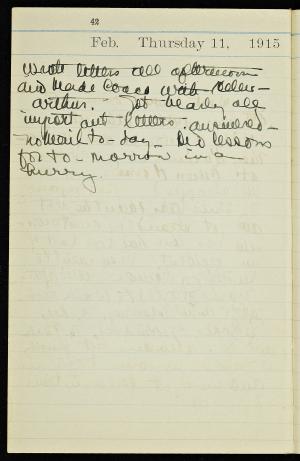 42
Feb. Thursday 11, 1915
wrote letters all afternoon
and made cocoa with Helen
Arthur. Got nearly all
important letters answered
no mail to-day. Did lessons
for to-morrow in a
hurry.